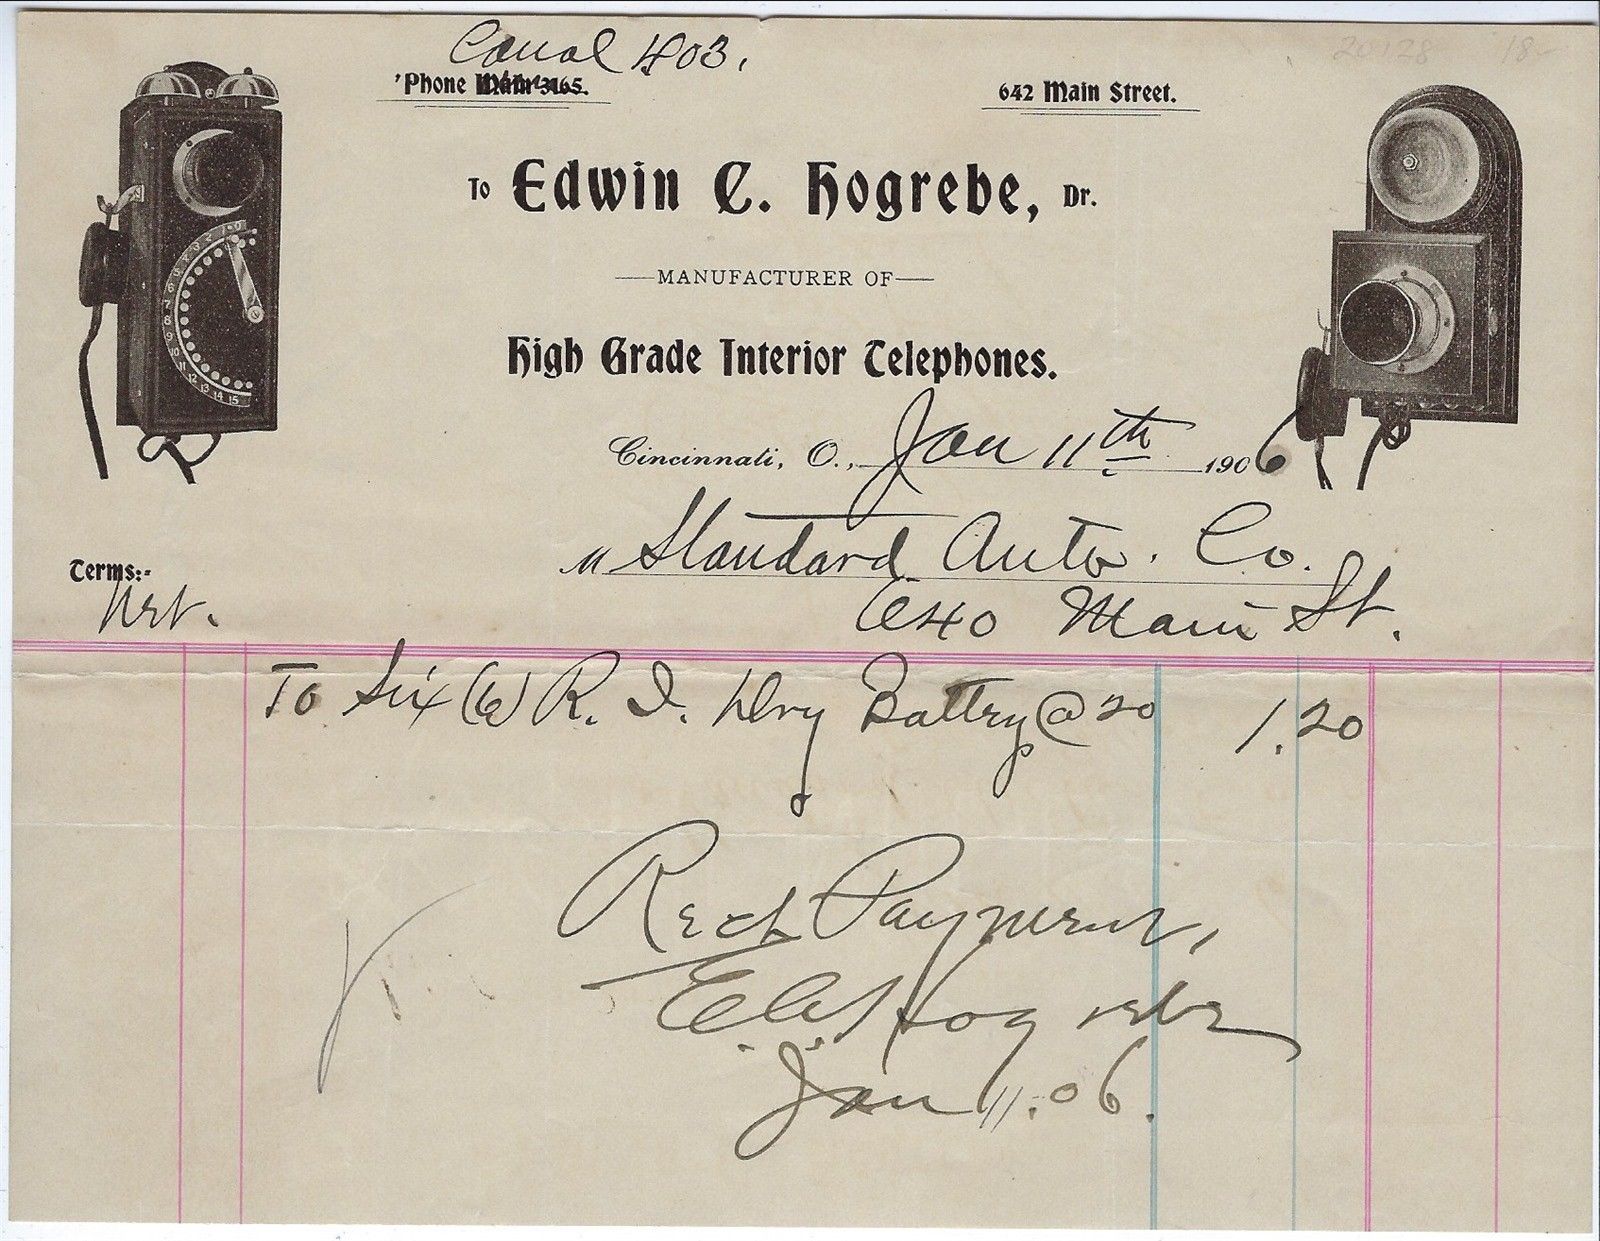 Canal 403.
'Phone Main 3165.
642 Main Street.
To Edwin C. Hogrebe, Dr.
MANUFACTURER OF
High Grade Interior Telephones.
Cincinnati, O., Jan 11th 1906
M Standard Auto. Co.
640 Main St.
Terms:-
Net.
To Six (6) R. I. Dry Battry @ 20 1.20
Recd Payment,
E.C. Hogrebe
Jan 11.06.
20128 18-
1 2 3 4 5 6 7 8 9 10 11 12 13 14 15